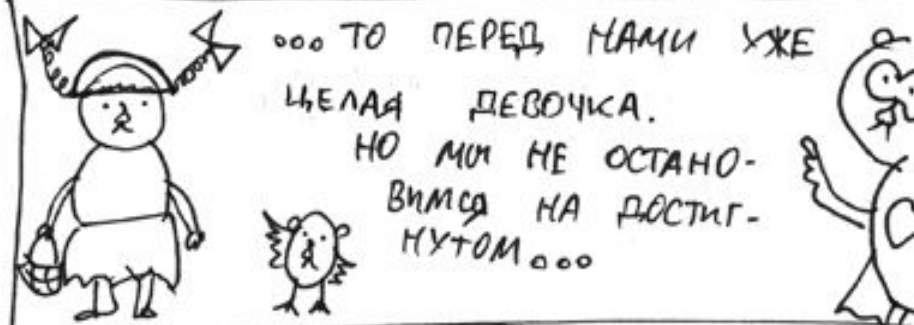 ...ТО ПЕРЕД НАМИ УЖЕ
ЦЕЛАЯ ДЕВОЧКА.
НО МЫ НЕ ОСТАНО-
ВИМСЯ НА ДОСТИГ-
НУТОМ...